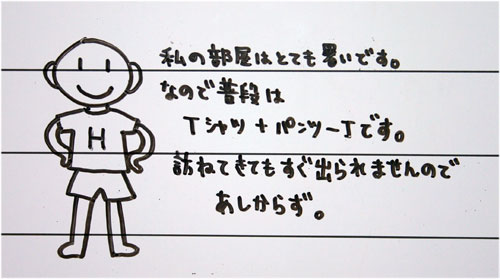 私の部屋はとても暑いです。
なので普段は
Tシャツ+パンツ一丁です。
訪ねてきてもすぐ出られませんので
あしからず。
H